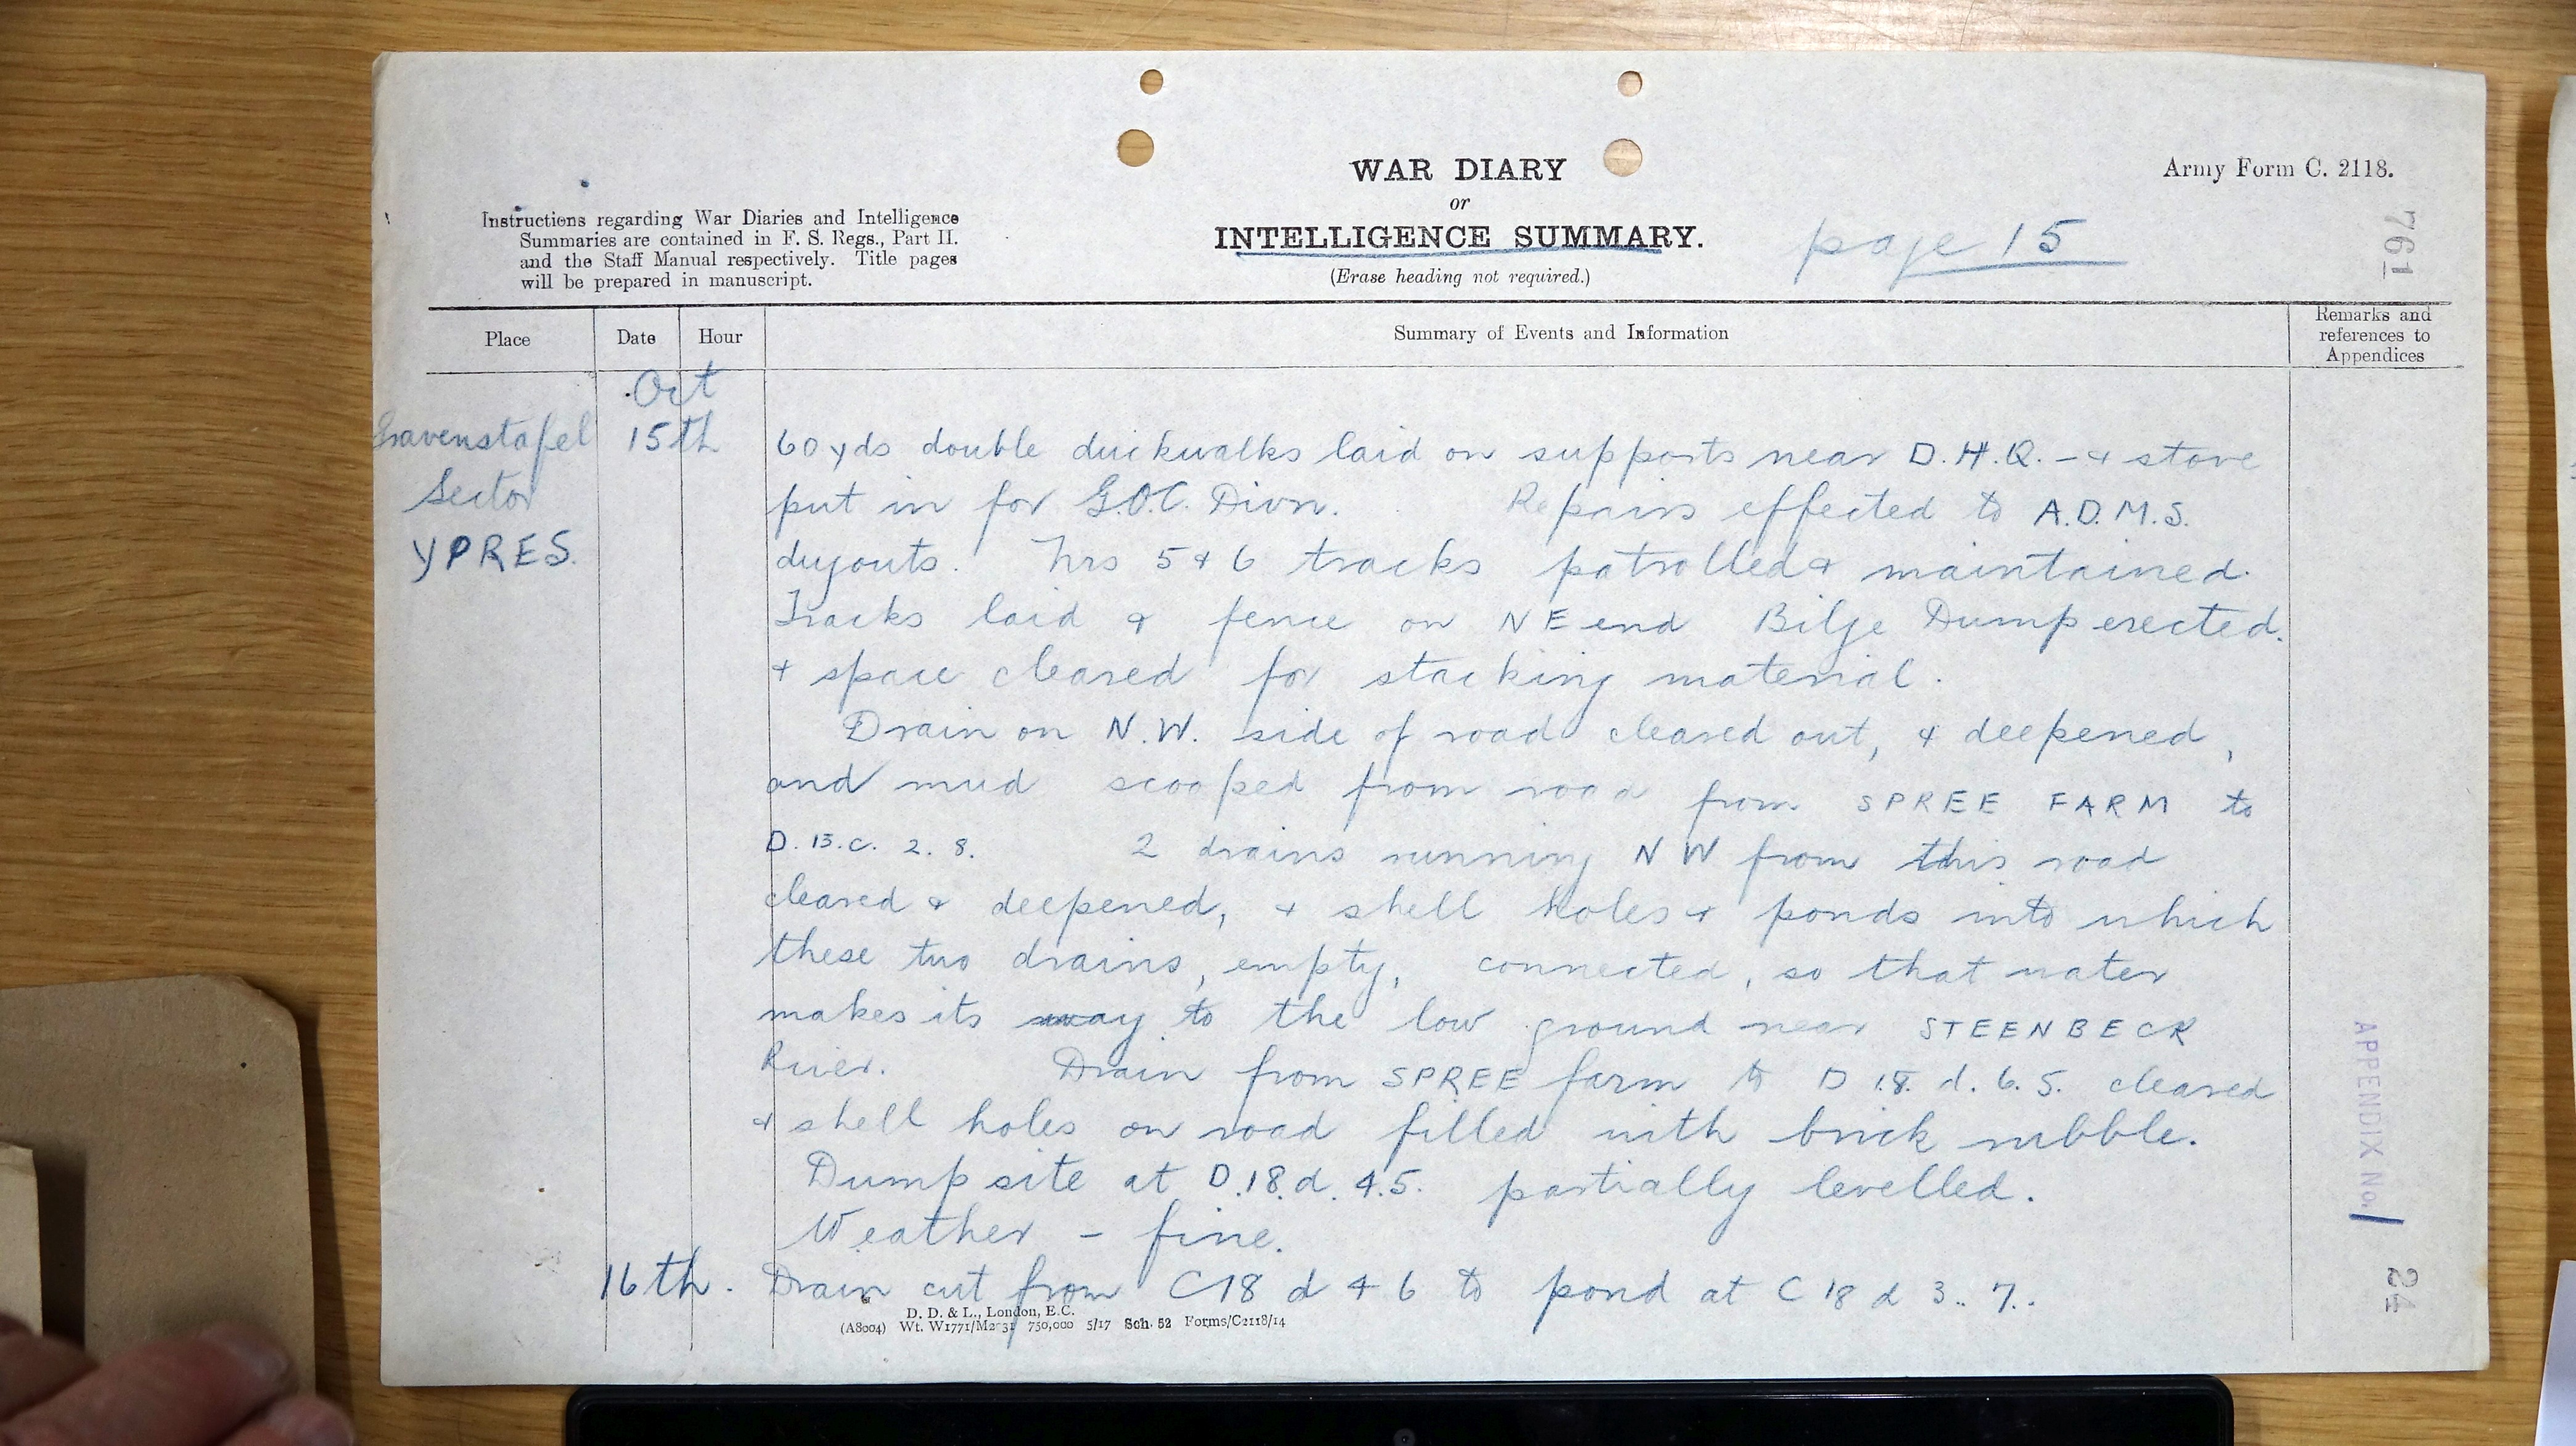 WAR DIARY
or
INTELLIGENCE SUMMARY.
(Erase heading not required.)
Army Form C. 2118.
page 15
761
Instructions regarding War Diaries and Intelligence
Summaries are contained in F. S. Regs., Part II.
and the Staff Manual respectively. Title pages
will be prepared in manuscript.
Place Date Hour Summary of Events and Information Remarks and references to Appendices
Oct
Gravenstafel
Sector
YPRES.
15th 60 yds double duckwalks laid on supports near D.H.Q. - & stove
put in for G.O.C. Divn. Repairs effected to A.D.M.S.
dugouts. Nrs 5 & 6 tracks patrolled & maintained.
Tracks laid & fence on NE end Bilge Dump erected.
& space cleared for stacking material.
Drain on N.W. side of road cleared out, & deepened,
and mud scooped from road from SPREE FARM to
D. 13. c. 2. 8. 2 drains running NW from this road
cleared & deepened, & shell holes & ponds into which
these two drains, empty, connected, so that water
makes its way to the low ground near STEENBECK
River. Drain from SPREE farm to D 18. d. 6. 5. cleared
& shell holes on road filled with brick rubble.
Dump site at D.18.d. 4.5. partially levelled.
Weather - fine.
16th. Drain cut from C18 d 4 6 to pond at C 18 d 3.. 7..
D. D. & L., London, E.C.
(A8004) Wt. W1771/M2031 750,000 5/17 Sch. 52 Forms/C2118/14
APPENDIX No. 1
24